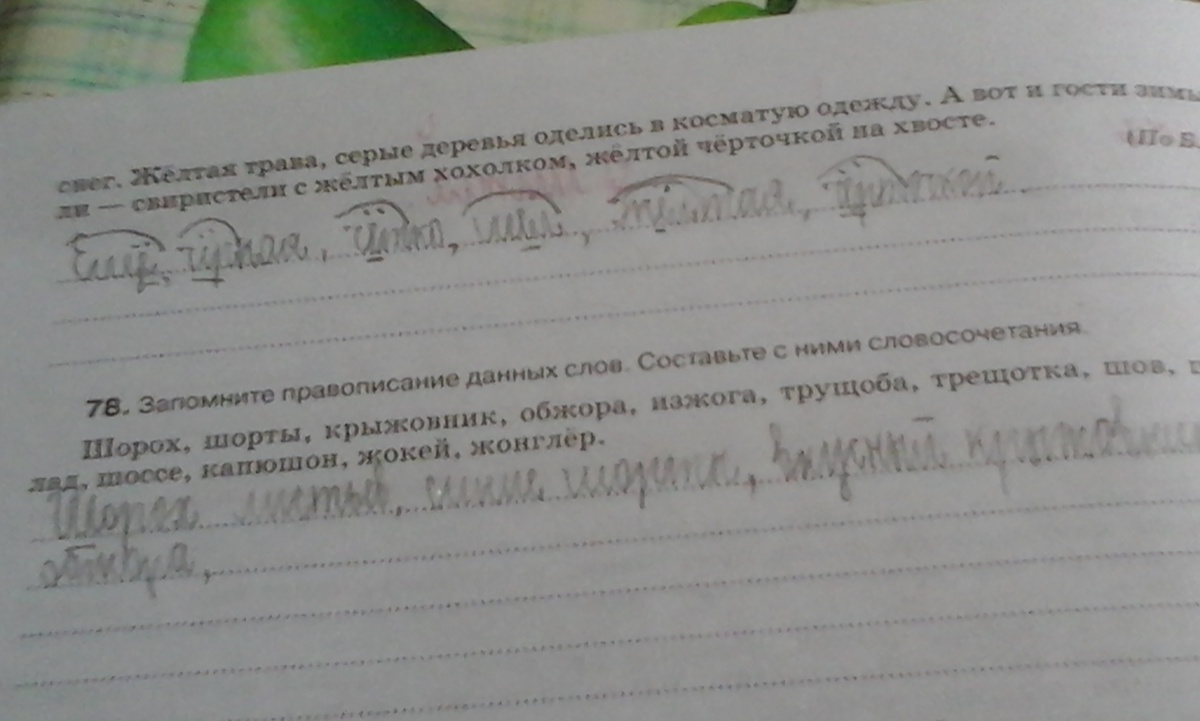 снег. Жёлтая трава, серые деревья оделись в косматую одежду. А вот и гости зимы
ли — свиристели с жёлтым хохолком, жёлтой чёрточкой на хвосте.
(По В.
Ещё, чёрная, чётко, шёл, жёлтая, чёрточкой.
78. Запомните правописание данных слов. Составьте с ними словосочетания.
Шорох, шорты, крыжовник, обжора, изжога, трущоба, трещотка, шов,
лад, шоссе, капюшон, жокей, жонглёр.
Шорох листьев, синие шорты, вкусный крыжовник
обжора,